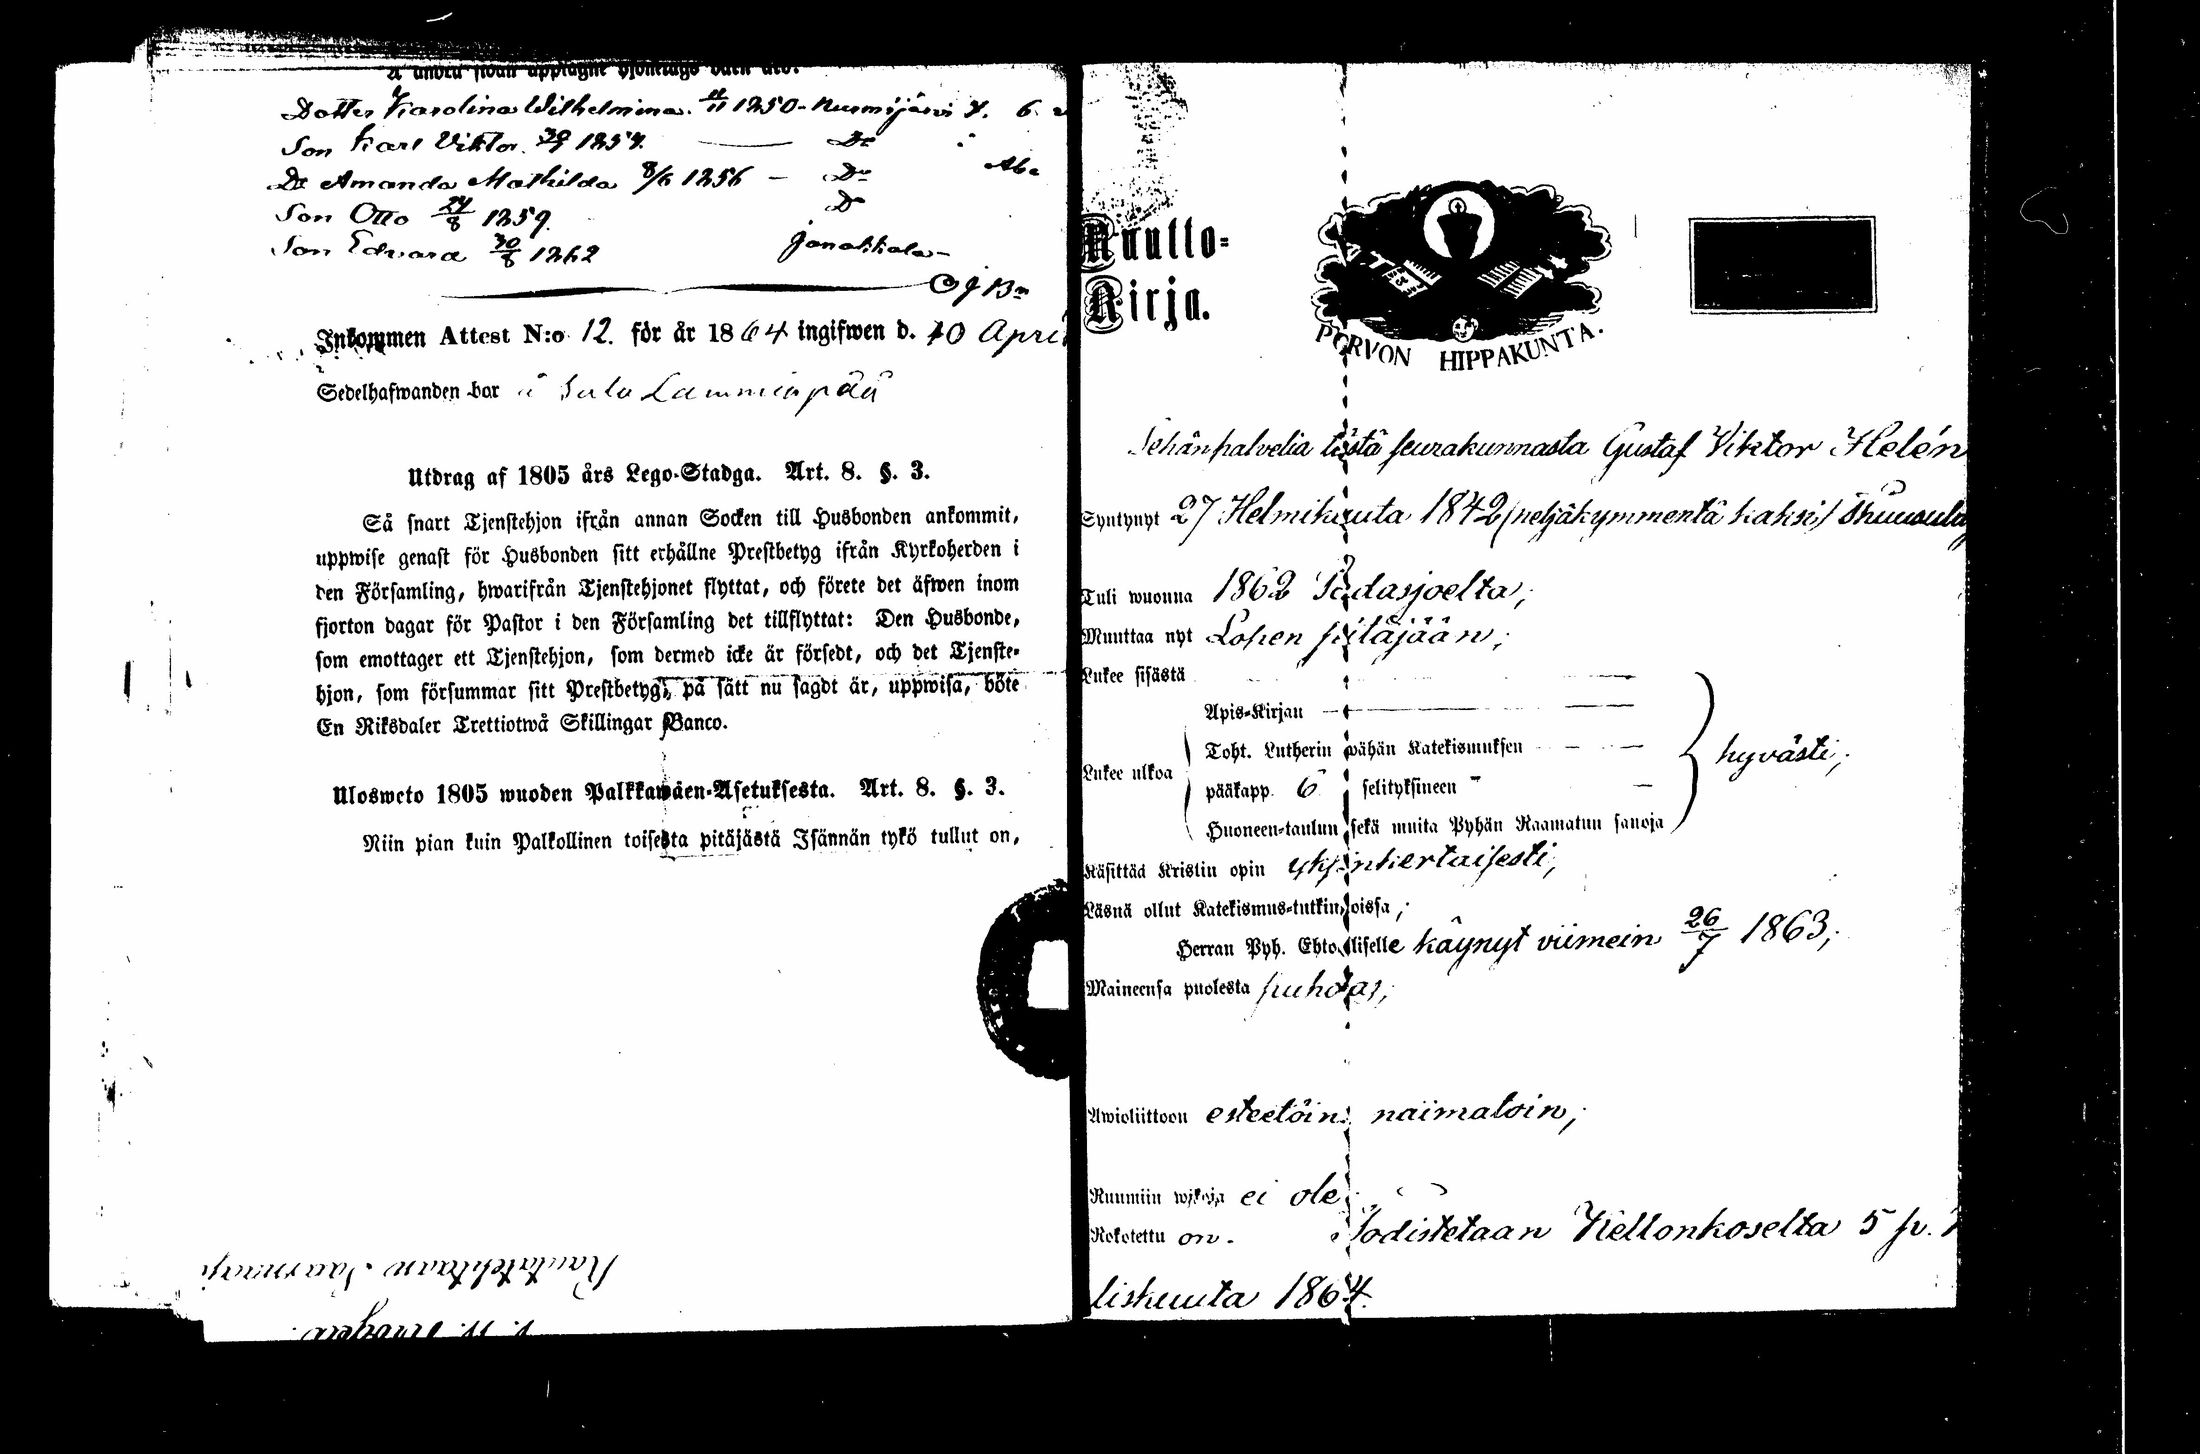 Å andra sidan upptagne hjonelags barn äro:
Dotter Karolina Wilhelmina. 1850 - Nurmijärvi
Son Karl Viktor. 1857. — Do
Do Amanda Mathilda 8/6 1856 — Do
Son Otto 27/8 1859. Do
Son Edvard 30/8 1862 Janakkala -
Inkommen Attest N:o 12. för år 1864 ingifwen d. 10 Apri
Sedelhafwanden bor å Lamminpää
Utdrag af 1805 års Lego-Stadga. Art. 8. §. 3.
Så snart Tjenstehjon ifrån annan Socken till Husbonden ankommit,
uppwise genast för Husbonden sitt erhållne Prestbetyg ifrån Kyrkoherden i
den Församling, hwarifrån Tjenstehjonet flyttat, och förete det äfwen inom
fjorton dagar för Pastor i den Församling det tillflyttat: Den Husbonde,
som emottager ett Tjenstehjon, som dermed icke är försedt, och det Tjenste-
hjon, som försummar sitt Prestbetyg, på sätt nu sagdt är, uppwisa, böte
En Riksdaler Trettiotwå Skillingar Banco.
Ulosweto 1805 wuoden Palkkawäen-Asetuksesta. Art. 8. §. 3.
Niin pian kuin Palkollinen toisesta pitäjästä Isännän tykö tullut on,
Muutto-
Kirja.
PORVON HIPPAKUNTA.
tästä seurakunnasta Gustaf Viktor Helén
Syntynyt 27 Helmikuuta 1842 (neljäkymmentä kaksi)
Tuli wuonna 1862 Padasjoelta;
Muuttaa nyt Lopen pitäjään;
Lukee sisästä
Apis-Kirjan
Toht. Lutherin wähän Katekismuksen
Lukee ulkoa
pääkapp. 6 selityksineen
hyvästi;
Huoneen-taulun sekä muita Pyhän Raamatun sanoja
Käsittää Kristin opin yksinkertaisesti;
Läsnä ollut Katekismus-tutkinnoissa;
Herran Pyh. Ehtoolliselle käynyt viimein 26/7 1863;
Maineensa puolesta puhdas;
Awioliittoon esteetöin; naimatoin;
Ruumiin wikoja ei ole
Rokotettu on. Todistetaan Kellonkoselta 5 p.
liskuuta 1864.